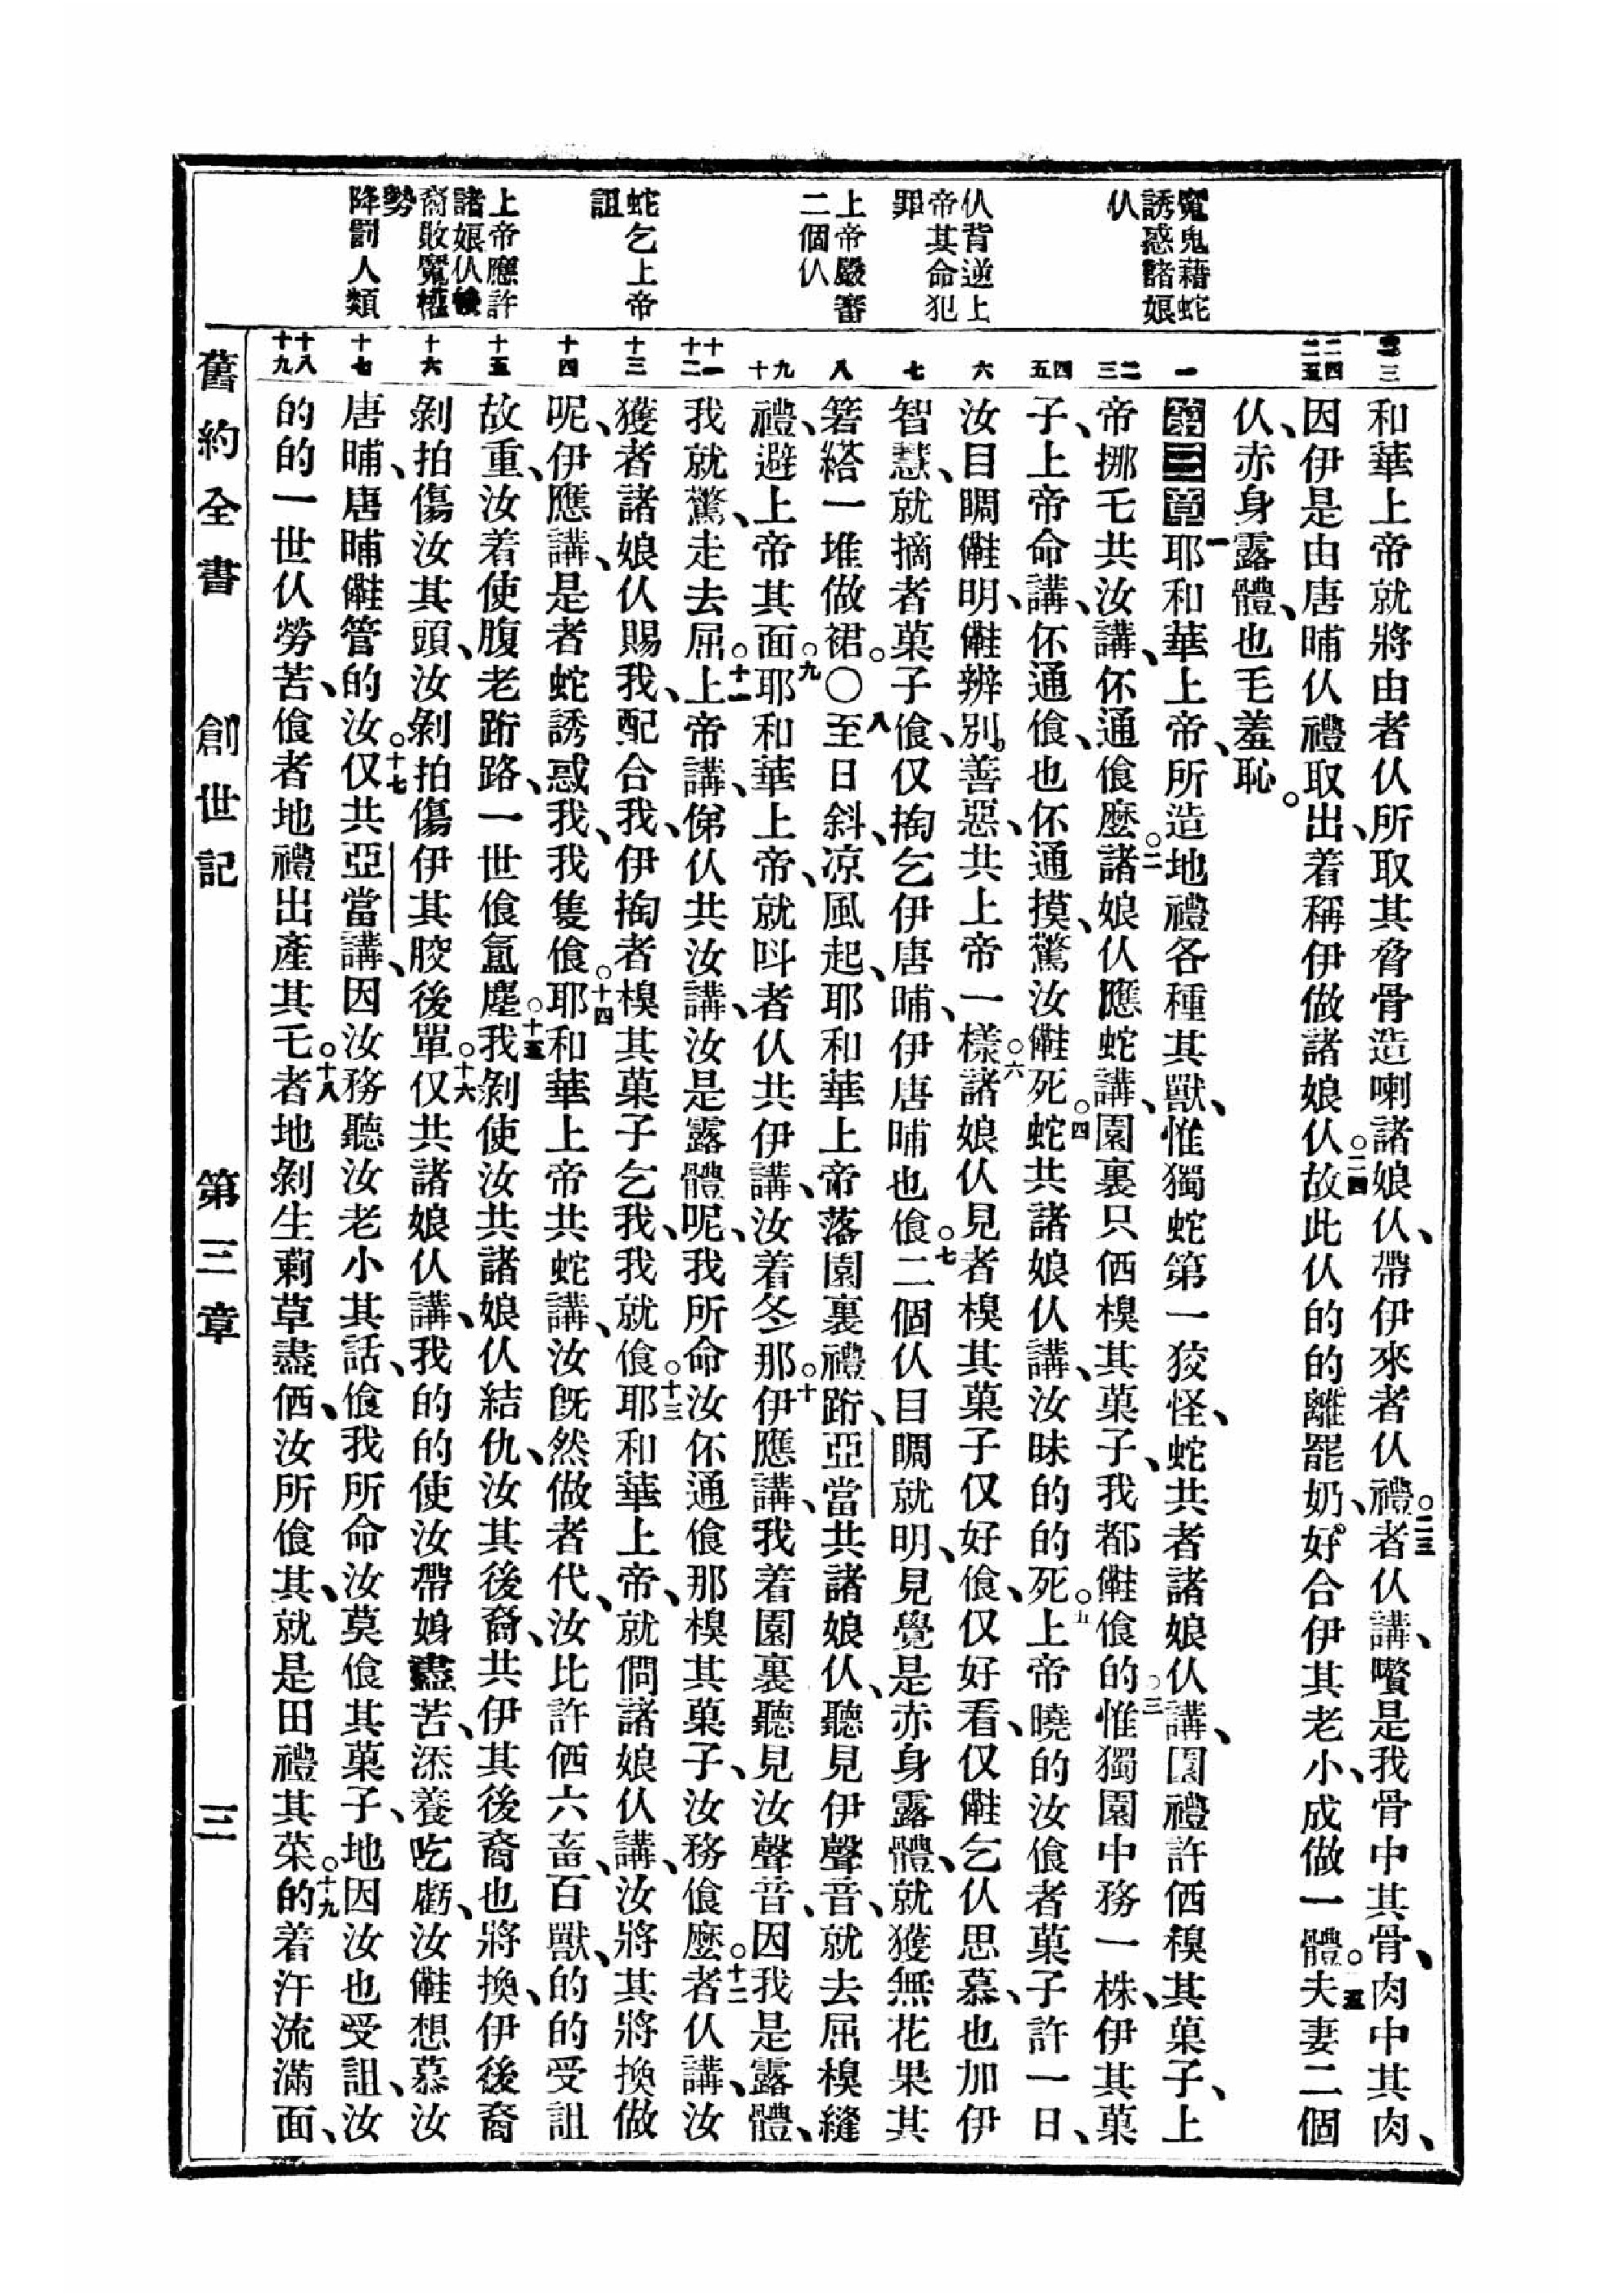 魔鬼藉蛇
誘惑諸娘
仈
仈背逆上
帝其命犯
罪
上帝嚴審
二個仈
蛇乞上帝
詛
上帝應許
諸娘仈後
裔敗魔權
勢
降罰人類
和華上帝就將由者仈所取其脅骨造喇諸娘仈、帶伊來者仈禮。二三者仈講、嚽是我骨中其骨、肉中其肉、
因伊是由唐晡仈禮取出、着稱伊做諸娘仈。二四故此仈的的離罷奶、好合伊其老小、成做一體。二五夫妻二個
仈、赤身露體、也毛羞恥。
第三章一耶和華上帝、所造地禮各種其獸、惟獨蛇第一狡怪、蛇共者諸娘仈講、園禮許𠊎槻其菓子、上
帝挪乇共汝講、伓通飡麽。二諸娘仈應蛇講、園裏只𠊎槻其菓子、我都䧹飡的。三惟獨園中務一株、伊其菓
子、上帝命講、伓通飡、也伓通摸、驚汝䧹死。四蛇共諸娘仈講、汝昧的的死。五上帝曉的汝飡者菓子許一日、
汝目睭䧹明、䧹辨別善惡、共上帝一樣。六諸娘仈見者槻其菓子仅好飡、仅好看、仅䧹乞仈思慕、也加伊
智慧、就摘者菓子飡、仅掏乞伊唐晡、伊唐晡也飡。七二個仈目睭就明、見覺是赤身露體、就獲無花果其
箬、縖一堆做裙。○八至日斜、凉風起、耶和華上帝落園裏禮跱、亞當共諸娘仈、聽見伊聲音、就去屈槻縫
禮、避上帝其面。九耶和華上帝、就呌者仈共伊講、汝着冬那。十伊應講、我着園裏聽見汝聲音、因我是露體、
我就驚、走去屈。十一上帝講、俤仈共汝講、汝是露體呢、我所命汝伓通飡那槻其菓子、汝務飡麽。十二者仈講、汝
獲者諸娘仈賜我、配合我、伊掏者槻其菓子乞我、我就飡。十三耶和華上帝、就問諸娘仈講、汝將其將換做
呢、伊應講、是者蛇誘惑我、我隻飡。十四耶和華上帝共蛇講、汝旣然做者代、汝比許𠊎六畜、百獸、的的受詛
故重、汝着使腹老跱路、一世飡氳塵。十五我剝使汝共諸娘仈結仇、汝其後裔、共伊其後裔也將換、伊後裔
剝拍傷汝其頭、汝剝拍傷伊其骹後單。十六仅共諸娘仈講、我的的使汝帶娚盡苦、添養吃虧、汝䧹想慕汝
唐晡、唐晡䧹管的汝。十七仅共亞當講、因汝務聽汝老小其話、飡我所命汝莫飡其菓子、地因汝也受詛、汝
的的一世仈勞苦、飡者地禮出產其乇。十八者地剝生蓟草盡𠊎、汝所飡其、就是田禮其菜。十九的着汗流滿面、
舊約全書　創世記　第三章　三